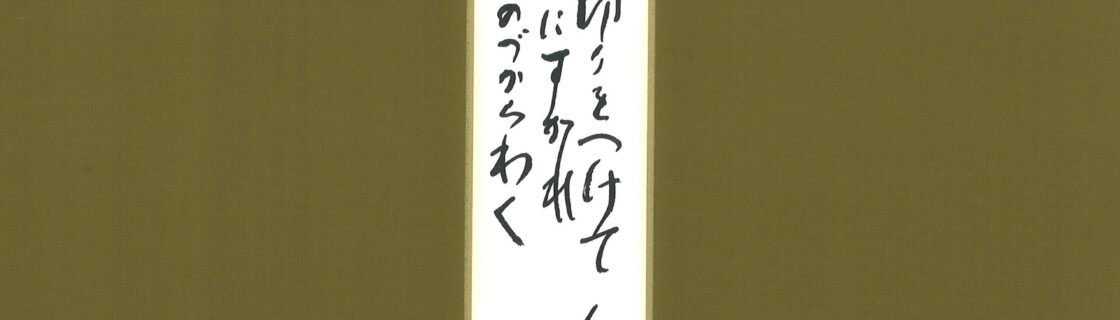 切りをつけて
にすかれ
のづからわく